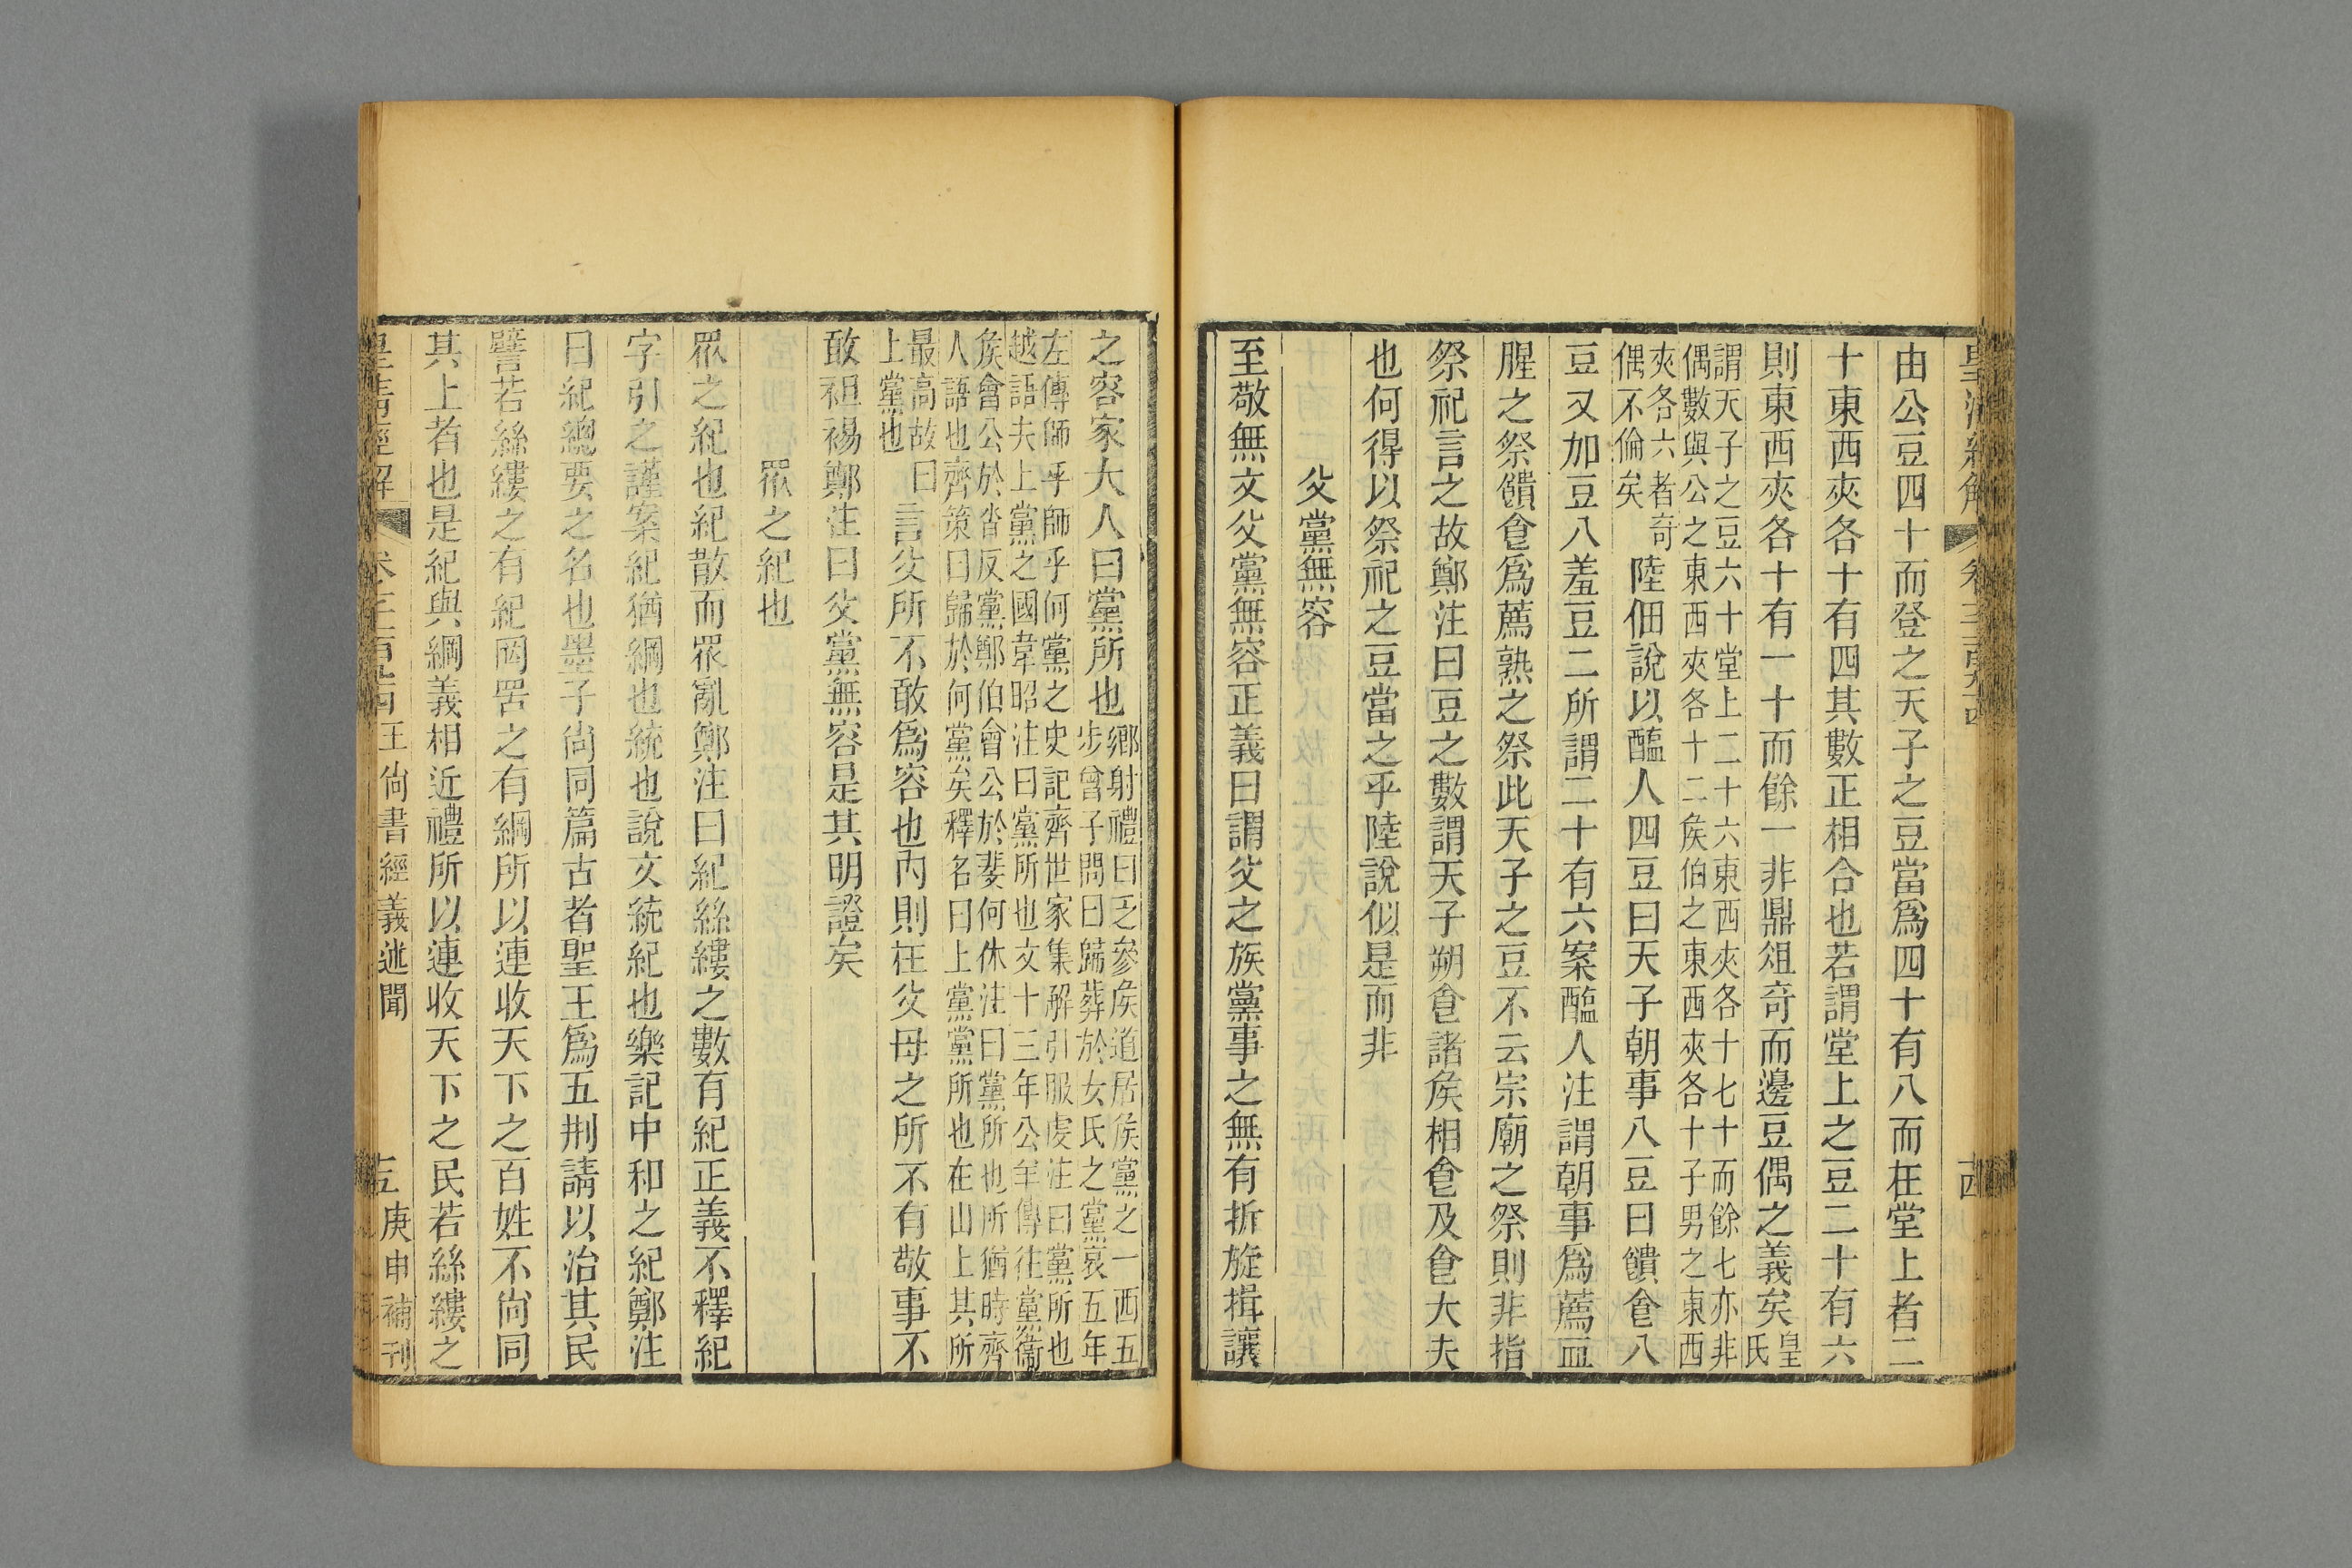 皇清經解 卷三百九十四 十四
由公豆四十而登之天子之豆當爲四十有八而在堂上者二
十東西夾各十有四其數正相合也若謂堂上之豆二十有六
則東西夾各十有一十而餘一非鼎俎奇而籩豆偶之義矣皇氏
謂天子之豆六十堂上二十六東西夾各十七十而餘七亦非
偶數與公之東西夾各十二矦伯之東西夾各十子男之東西
夾各六者奇
偶不倫矣
陸佃說以醢人四豆曰天子朝事八豆曰饋食八
豆又加豆八羞豆二所謂二十有六案醢人注謂朝事爲薦血
腥之祭饋食爲薦熟之祭此天子之豆不云宗廟之祭則非指
祭祀言之故鄭注曰豆之數謂天子朔食諸矦相食及食大夫
也何得以祭祀之豆當之乎陸說似是而非
父黨無容
至敬無文父黨無容正義曰謂父之族黨事之無有折旋揖讓
之容家大人曰黨所也
鄉射禮曰乏參矦道居矦黨之一西五
步曾子問曰歸葬於女氏之黨哀五年
左傳師乎師乎何黨之史記齊世家集解引服虔注曰黨所也
越語夫上黨之國韋昭注曰黨所也文十三年公羊傳往黨衞
矦會公於沓反黨鄭伯會公於斐何休注曰黨所也所猶時齊
人語也齊策曰歸於何黨矣釋名曰上黨黨所也在山上其所
最高故曰
上黨也
言父所不敢爲容也內則在父母之所不有敬事不
敢袒裼鄭注曰父黨無容是其明證矣
眾之紀也
眾之紀也紀散而眾亂鄭注曰紀絲縷之數有紀正義不釋紀
字引之謹案紀猶綱也統也說文統紀也樂記中和之紀鄭注
曰紀總要之名也墨子尙同篇古者聖王爲五刑請以治其民
譬若絲縷之有紀罔罟之有綱所以連收天下之百姓不尙同
其上者也是紀與綱義相近禮所以連收天下之民若絲縷之
皇清經解 卷三百九十四王尙書經義述聞 十五 庚申補刊